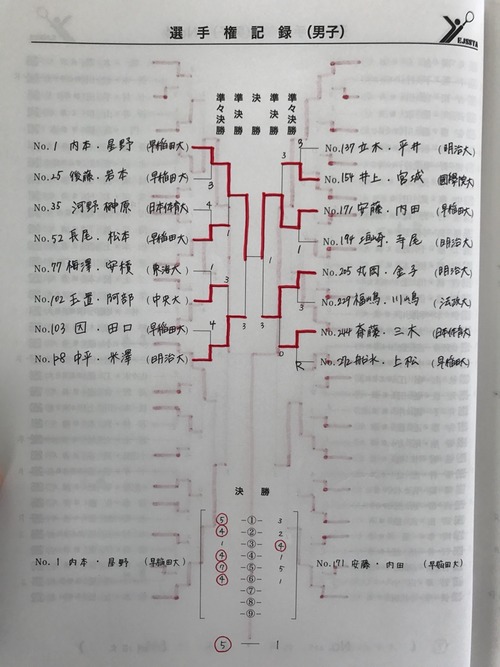 選手権記録（男子）
E.JSHTA
準々決勝 準決勝 決勝 準決勝 準々決勝
No.1 内本・星野 (早稲田大)
No.25 後藤・岩本 (早稲田大)
No.35 河野 榊原 (日本体育大)
No.52 長尾・松本 (早稲田大)
No.77 梅澤・安積 (東海大)
No.102 玉置・阿部 (中央大)
No.103 因・田口 (早稲田大)
No.128 中平・米澤 (明治大)
3
4
1
1
3
4
3
No.137 立木・平井 (明治大)
No.159 井上・宮城 (國學院大)
No.171 安藤・内田 (早稲田大)
No.194 ・寺尾 (明治大)
No.205 丸岡・金子 (明治大)
No.229 福嶋・川嶋 (法政大)
No.244 斎藤・三木 (日本体育大)
船水・上松 (早稲田大)
3
3
1
1
3
3
0
R
決勝
5 ー①ー 3
4 ー②ー 2
1 ー③ー 4
4 ー④ー 1
7 ー⑤ー 5
4 ー⑥ー 1
ー⑦ー
ー⑧ー
ー⑨ー
No.1 内本・星野 (早稲田大)
No.171 安藤・内田 (早稲田大)
5 — 1